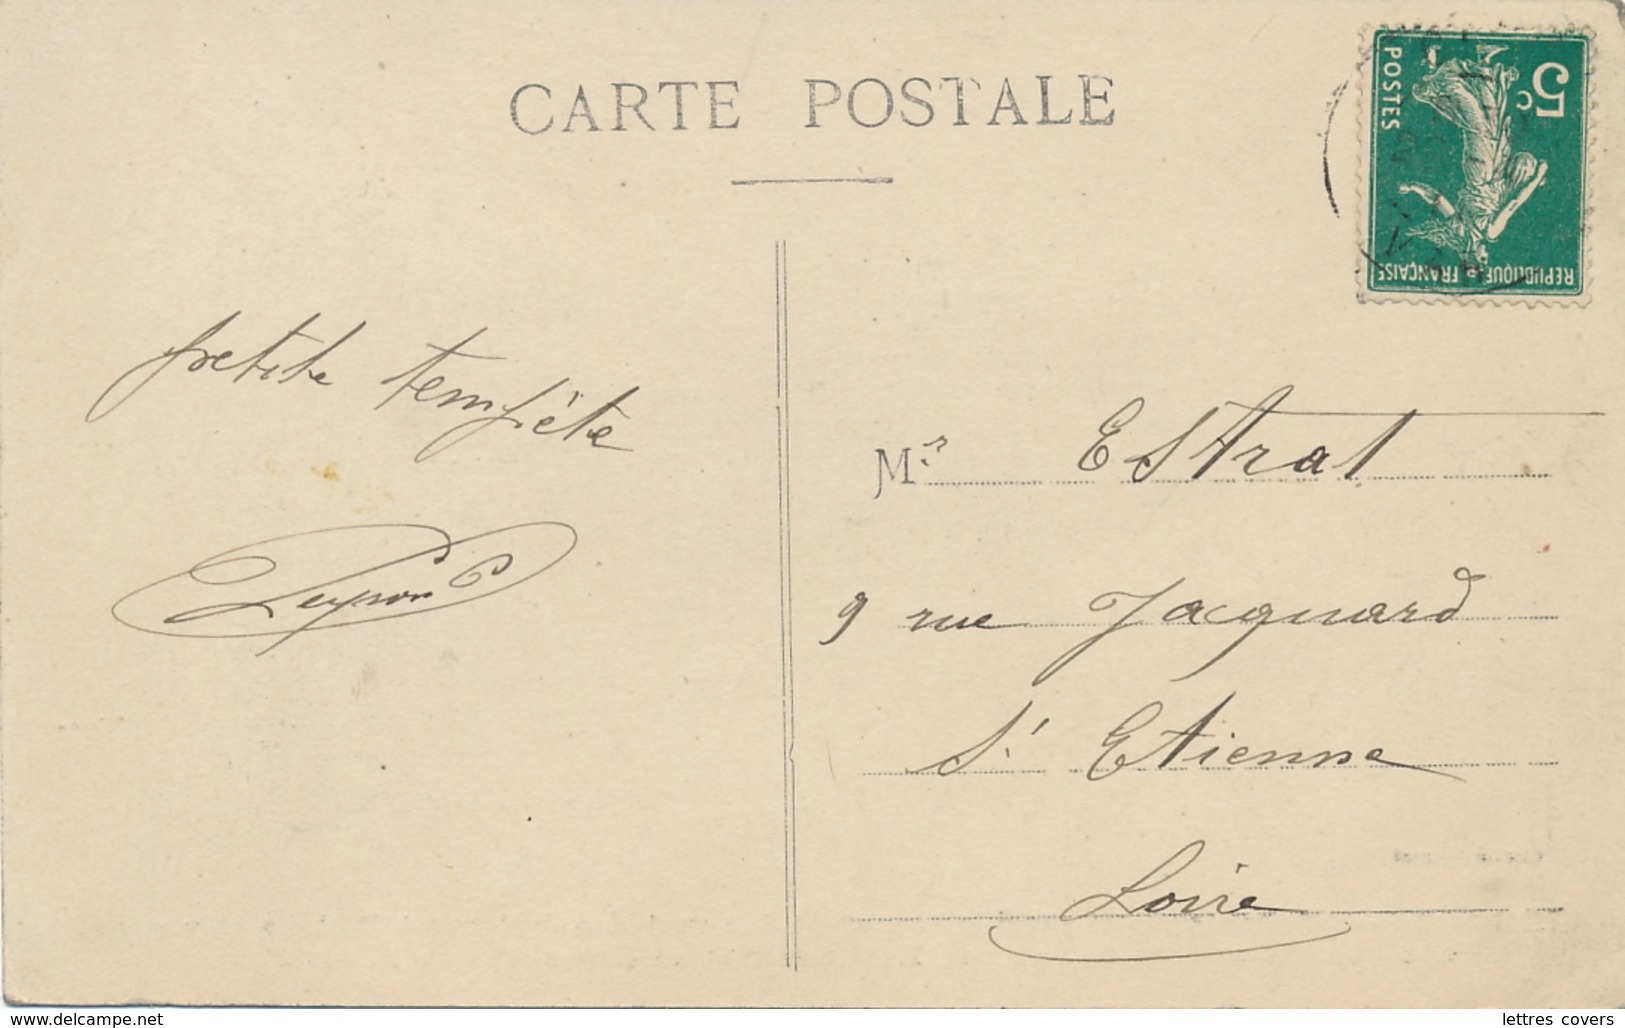 CARTE POSTALE
5c
POSTES
REPUBLIQUE FRANÇAISE
petite tempête
Peyron
Mr. Estrat
9 rue Jacquard
St Etienne
Loire
www.delcampe.net
lettres_covers